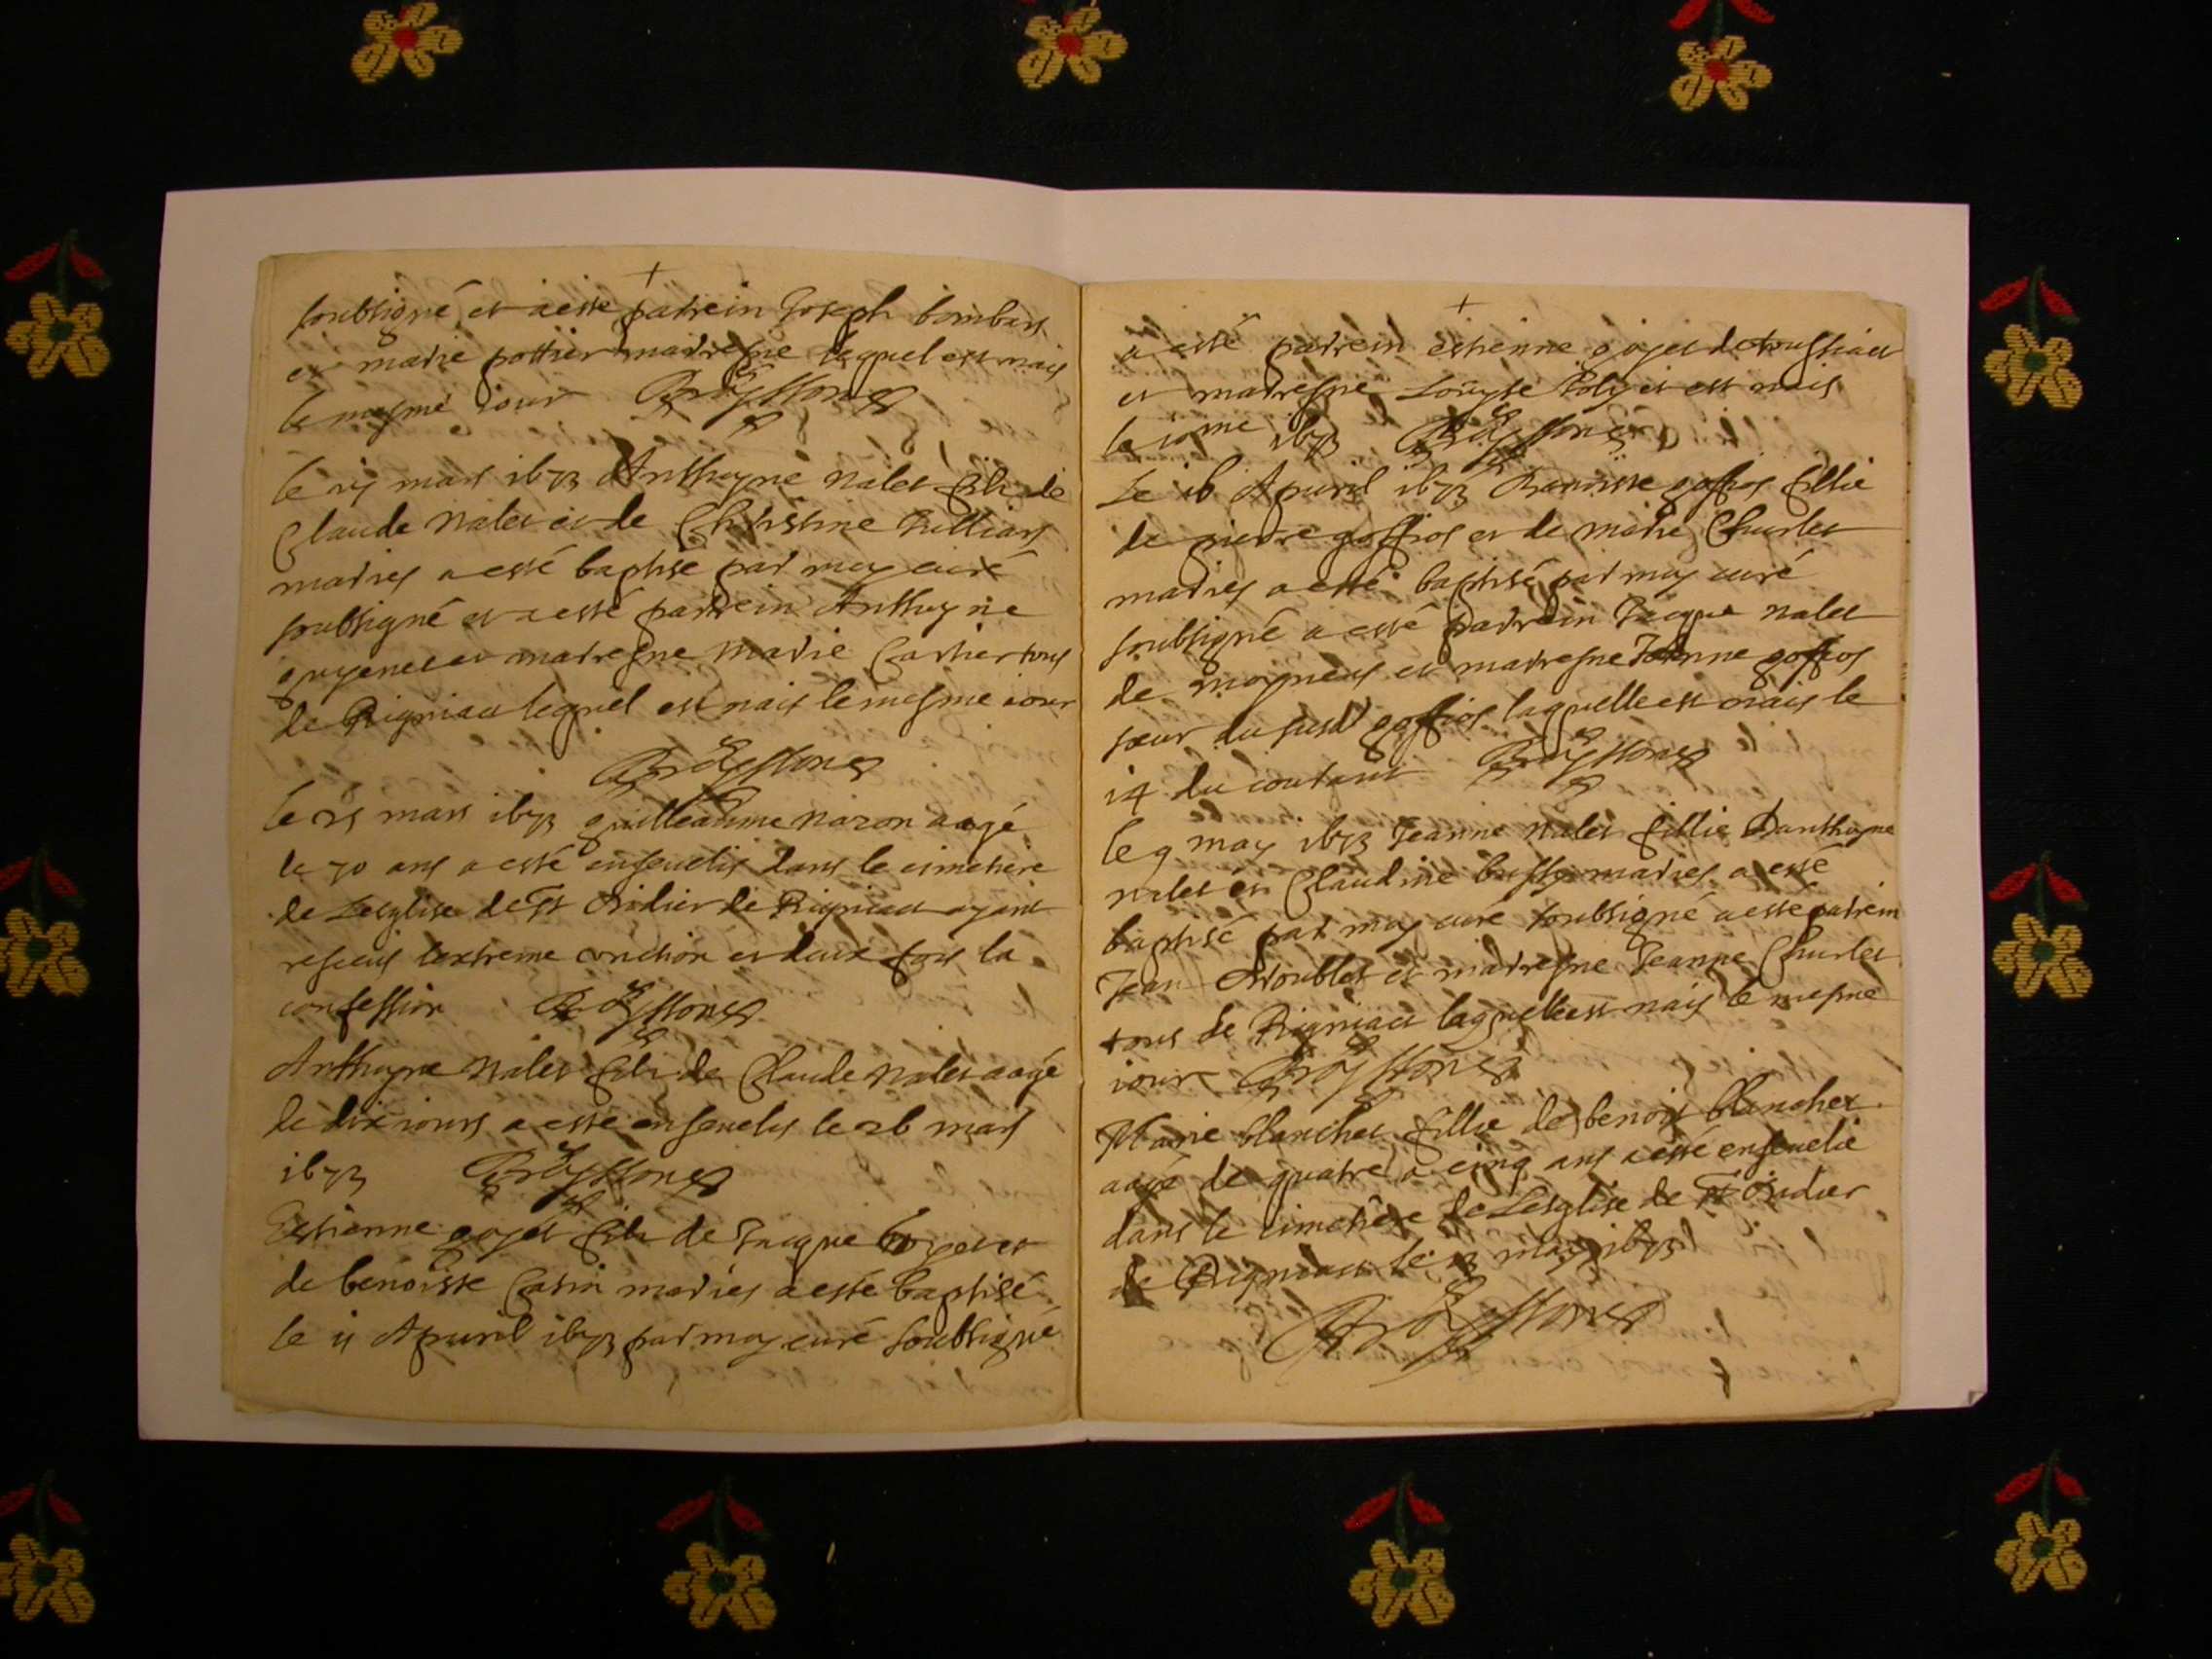 +
soubsigné et a esté parrein Joseph bombars
et marie pottier marresne lequel est nais
le mesme iour
mars 1673 Anthoyne Nalet fils de
Claude Nalet et de Christine
mariés a esté baptisé par moy curé
soubsigné et a esté parrein Anthoyne
guyenet et marresne Marie Cartier tous
de Rigniau lequel est nais le mesme iour
le 25 mars 1673 guilleaume aagé
de 70 ans a esté enseuelis dans le cimetiere
de Lesglise de St Didier de Rigniau ayant
resceus lextreme onction et deux fois la
confession
Anthoyne Nalet fils de Claude Nalet aagé
de dix iours a esté enseuelis le 26 mars
1673
Estienne goyet fils de Jacque goyet et
de benoiste mariés a esté baptisé
le 11 Apuril 1673 par moy curé soubsigné
+
a esté parrein estienne goyet de
et marresne Loüyse Poly et est nais
le 10me 1673
Le 16 Apuril 1673 Benoiste goffios fillie
de pierre goffios et de marie Charlet
mariés a esté baptisé par moy curé
soubsigné a esté parrein Jacque Nalet
de et marresne Jeanne goffios
sœur du susd goffios laquelle est nais le
14 du courant
le 9 may 1673 Jeanne Nalet fillie Danthoyne
nalet et Claudine bussy mariés a esté
baptisé par moy curé soubsigné a esté parrein
Jean et marresne Jeanne Charlet
tous de Rigniau laquelle est nais le mesme
iour
Marie blanchet fillie de benoist blanchet
aagé de quatre a cinq ans a esté enseuelie
dans le cimetiére de Lesglise de St Didier
de Rigniau le 13 may 1673